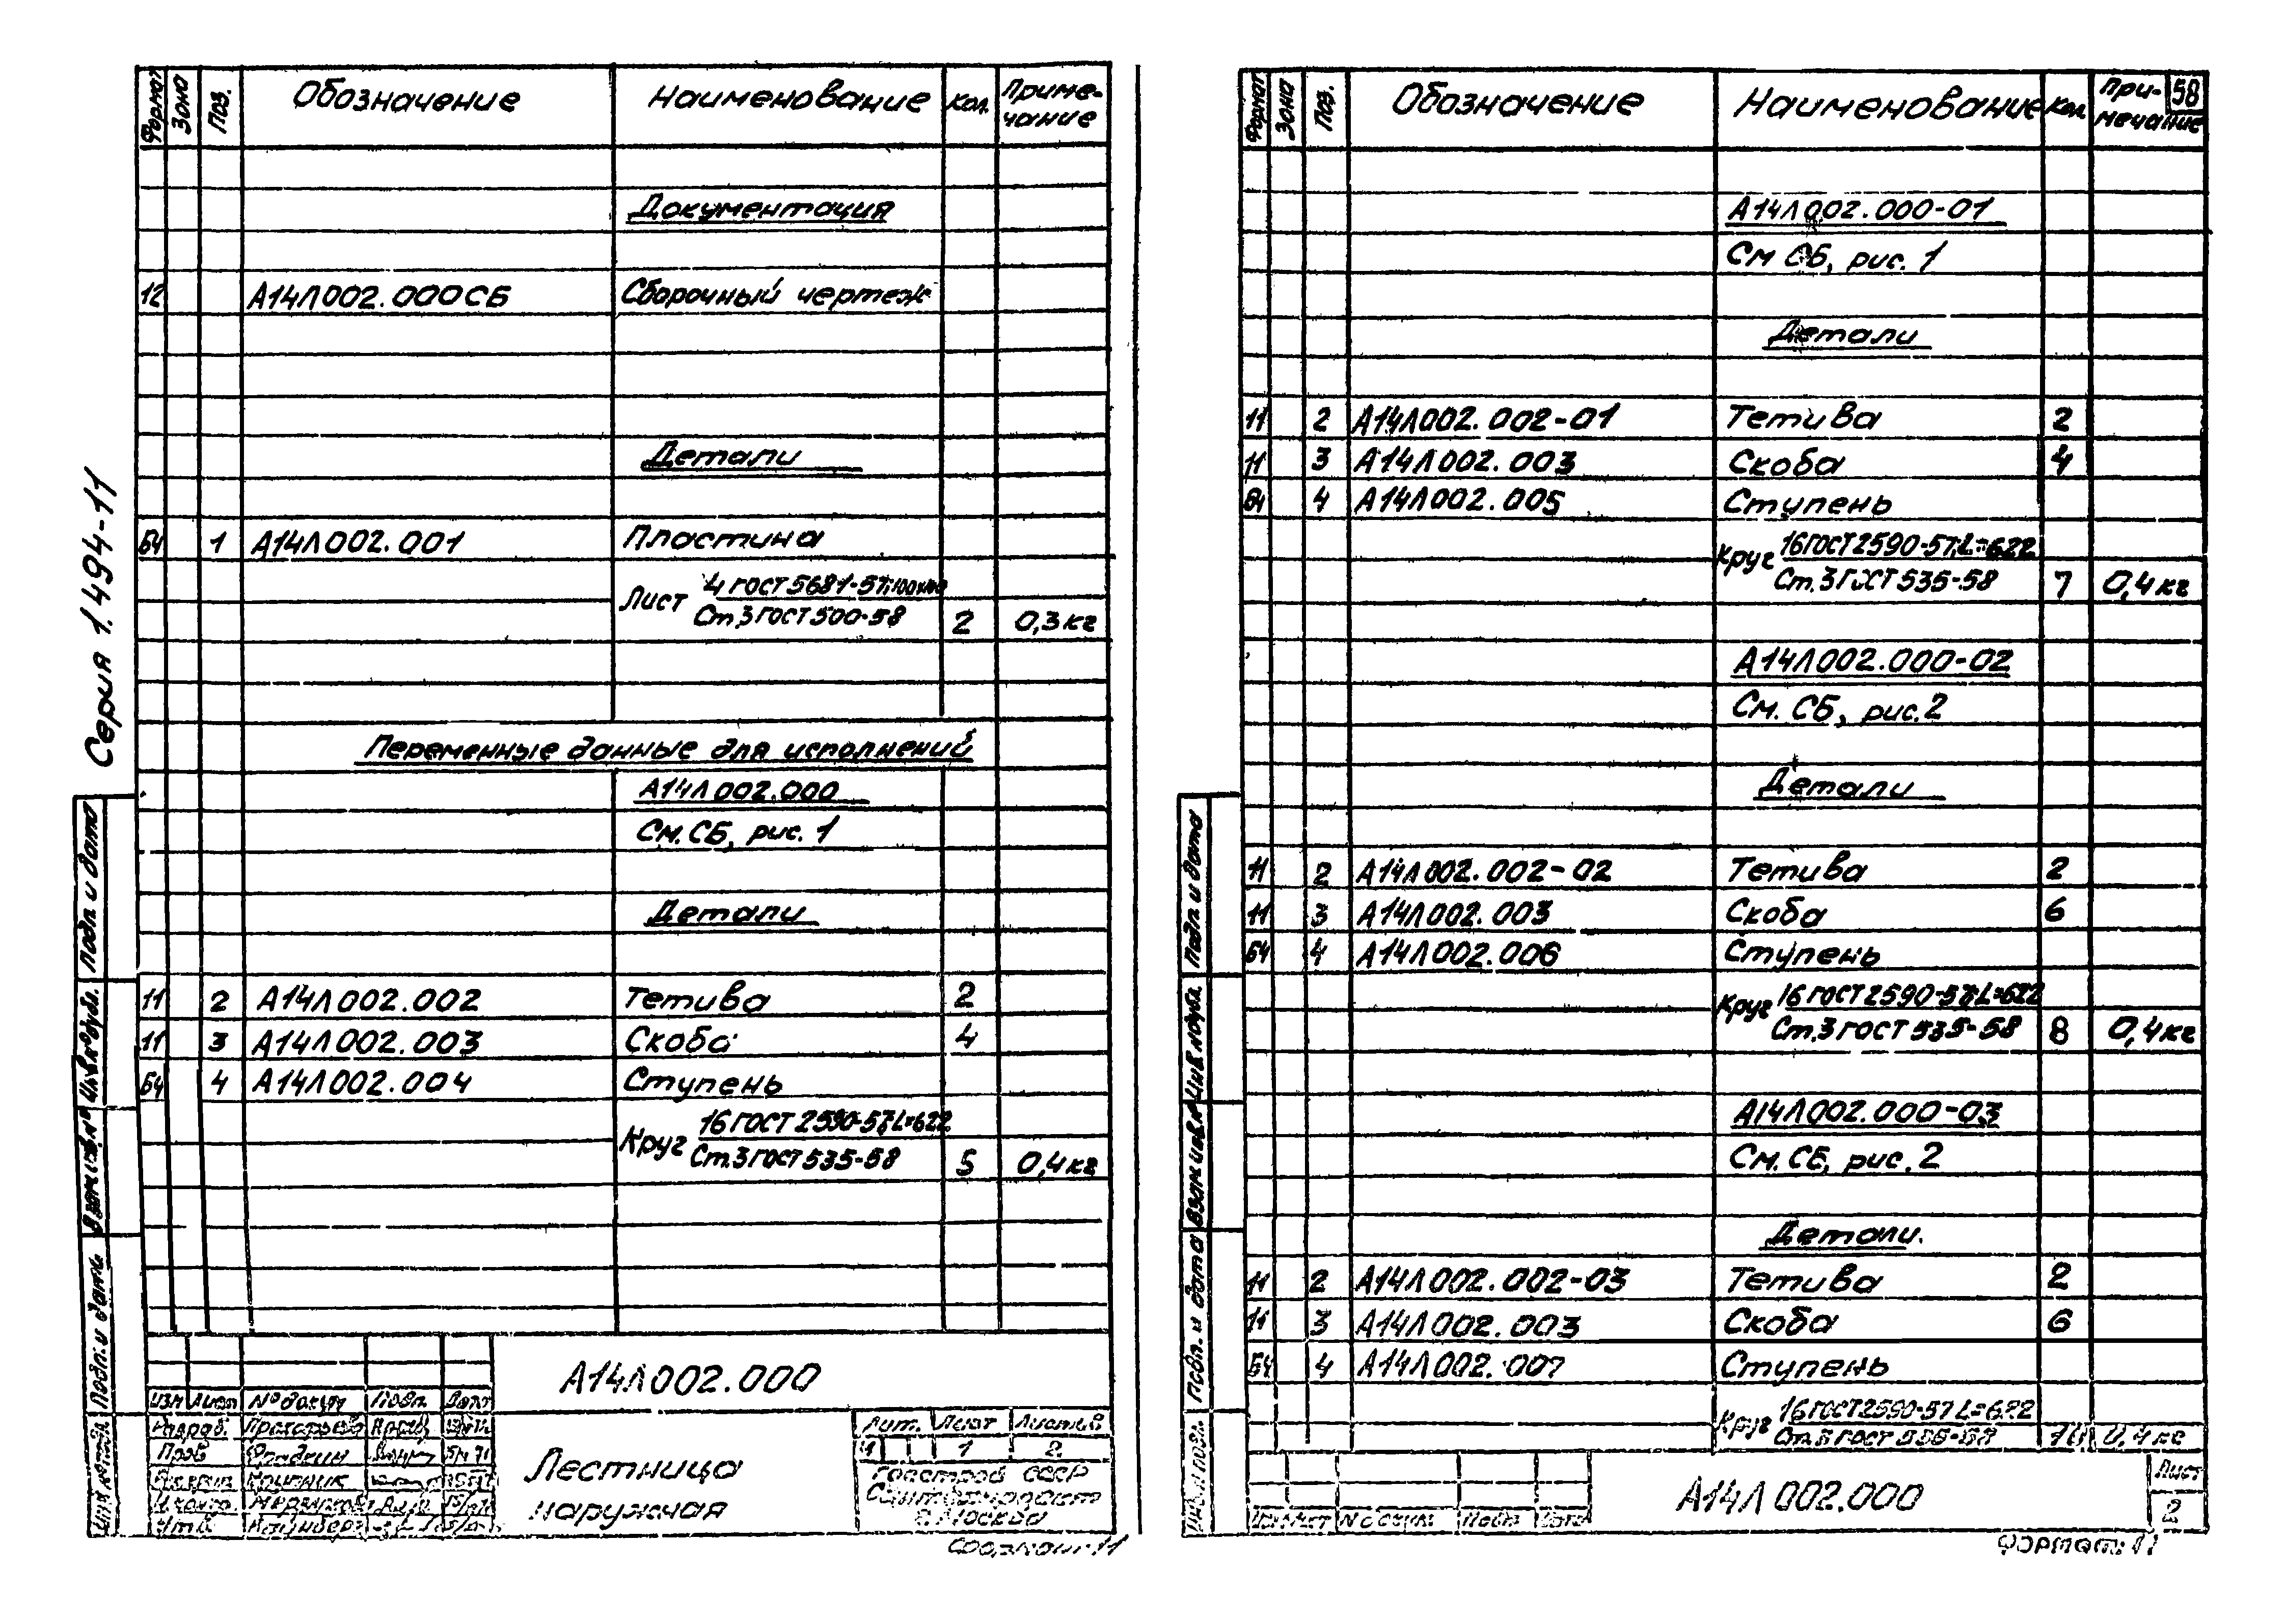 Серия 1.494-11
Формат Зона Поз. Обозначение Наименование Кол. Приме-чание
Документация
12 А14Л002.000СБ Сборочный чертеж
Детали
БЧ 1 А14Л002.001 Пластина
Лист 4 ГОСТ 5681-57;
Ст.3 ГОСТ 500-58 2 0,3кг
Переменные данные для исполнений
А14Л002.000
См. СБ, рис. 1
Детали
11 2 А14Л002.002 Тетива 2
11 3 А14Л002.003 Скоба 4
БЧ 4 А14Л002.004 Ступень
Круг 16 ГОСТ 2590-57; L=622
Ст.3 ГОСТ 535-58 5 0,4кг
А14Л002.000
Изм Лист № докум Подп. Дата
Разраб.
Пров
Лестница
наружная
Лит. Лист Листов
И 1 2
Госстрой СССР
г. Москва
Формат 11
Подп. и дата
Инв. № дубл.
Взам. инв. №
Подп. и дата
Инв. № подл.
58
Формат Зона Поз. Обозначение Наименование Кол. При-мечание
А14Л002.000-01
См СБ, рис. 1
Детали
11 2 А14Л002.002-01 Тетива 2
11 3 А14Л002.003 Скоба 4
БЧ 4 А14Л002.005 Ступень
Круг 16 ГОСТ 2590-57; L=622
Ст.3 ГОСТ 535-58 7 0,4кг
А14Л002.000-02
См. СБ, рис. 2
Детали
11 2 А14Л002.002-02 Тетива 2
11 3 А14Л002.003 Скоба 6
БЧ 4 А14Л002.006 Ступень
Круг 16 ГОСТ 2590-57; L=622
Ст.3 ГОСТ 535-58 8 0,4кг
А14Л002.000-03
См. СБ, рис. 2
Детали.
11 2 А14Л002.002-03 Тетива 2
11 3 А14Л002.003 Скоба 6
БЧ 4 А14Л002.007 Ступень
Круг 16 ГОСТ 2590-57 L=622
Ст.3 ГОСТ 535-58 10 0,4кг
А14Л002.000
Изм Лист № докум Подп. Дата
Лист
2
Формат 11
Подп. и дата
Инв. № дубл.
Взам. инв. №
Подп. и дата
Инв. № подл.